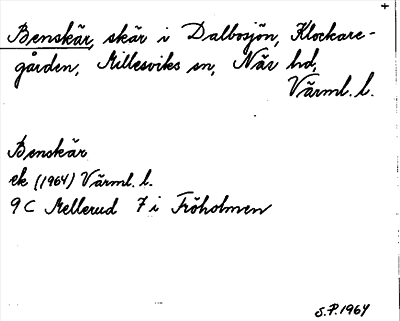 +
Benskär, skär i Dalbosjön, Klockare-
gården, Millesviks sn, Näs hd,
Värml. l.
Benskär
ek (1964) Värml. l.
9 C Mellerud 7 i Fröholmen
S.P. 1964